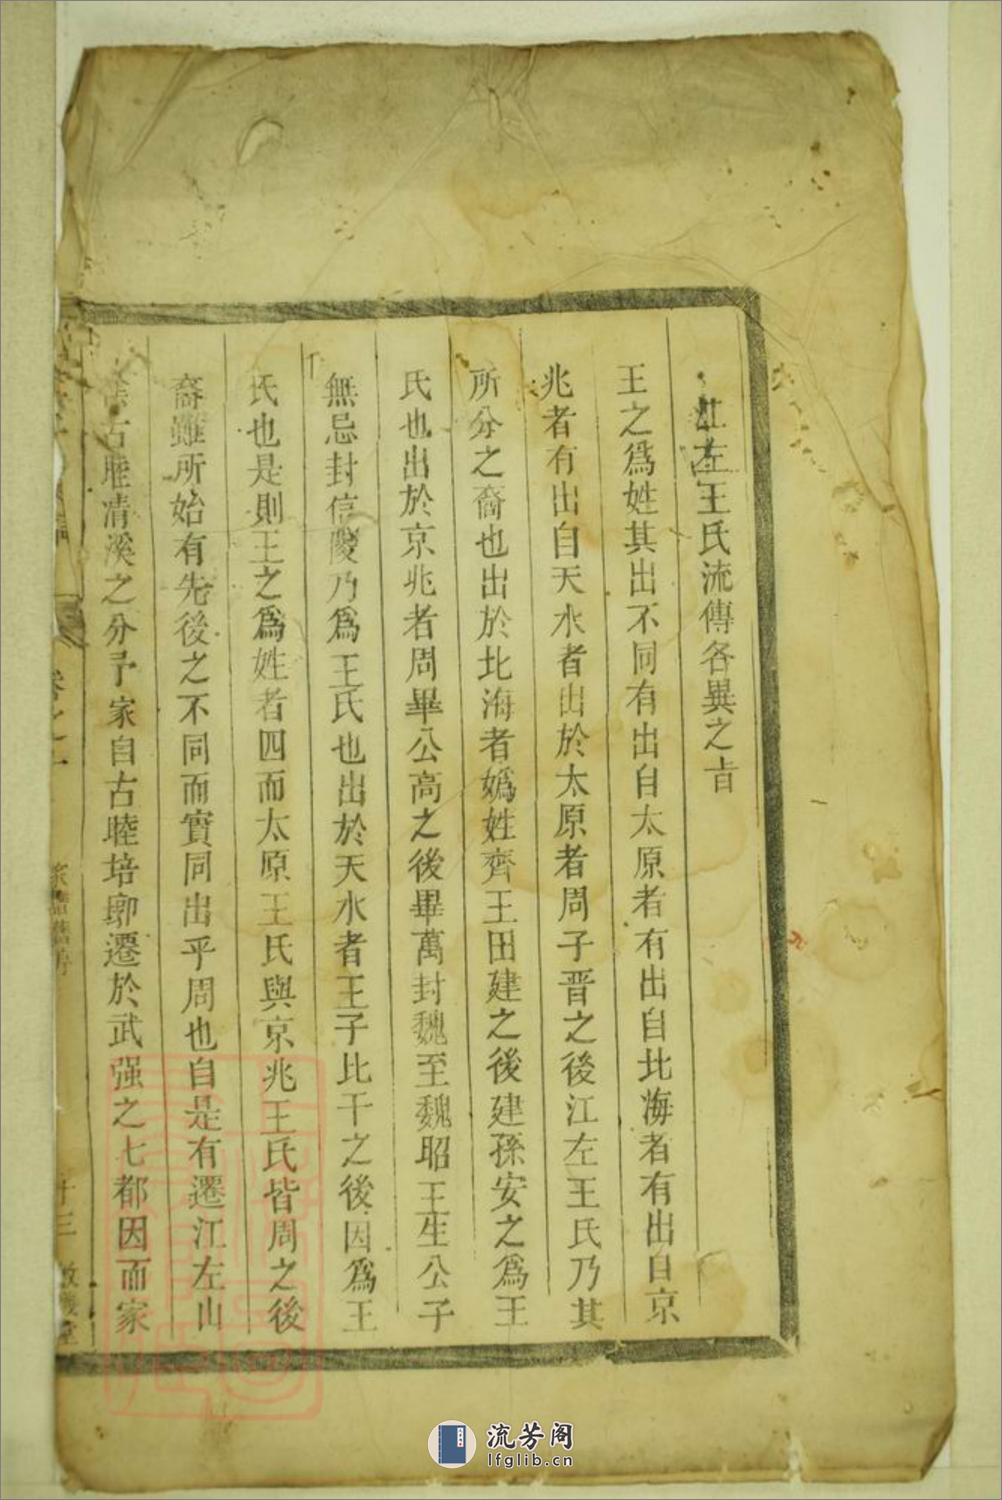 江左王氏流傳各異之㫖
王之爲姓其出不同有出自太原者有出自北海者有出自京
兆者有出自天水者出於太原者周子晋之後江左王氏乃其
所分之裔也出於北海者嬀姓齊王田建之後建孫安之爲王
氏也出於京兆者周畢公高之後畢萬封魏至魏昭王生公子
無忌封信陵乃爲王氏也出於天水者王子比干之後因爲王
氏也是則王之爲姓者四而太原王氏與京兆王氏皆周之後
裔雖所始有先後之不同而實同出乎周也自是有遷江左山
古睦清溪之分予家自古睦培郭遷於武强之七都因而家
卷之一
十三
流芳阁
lfglib.cn